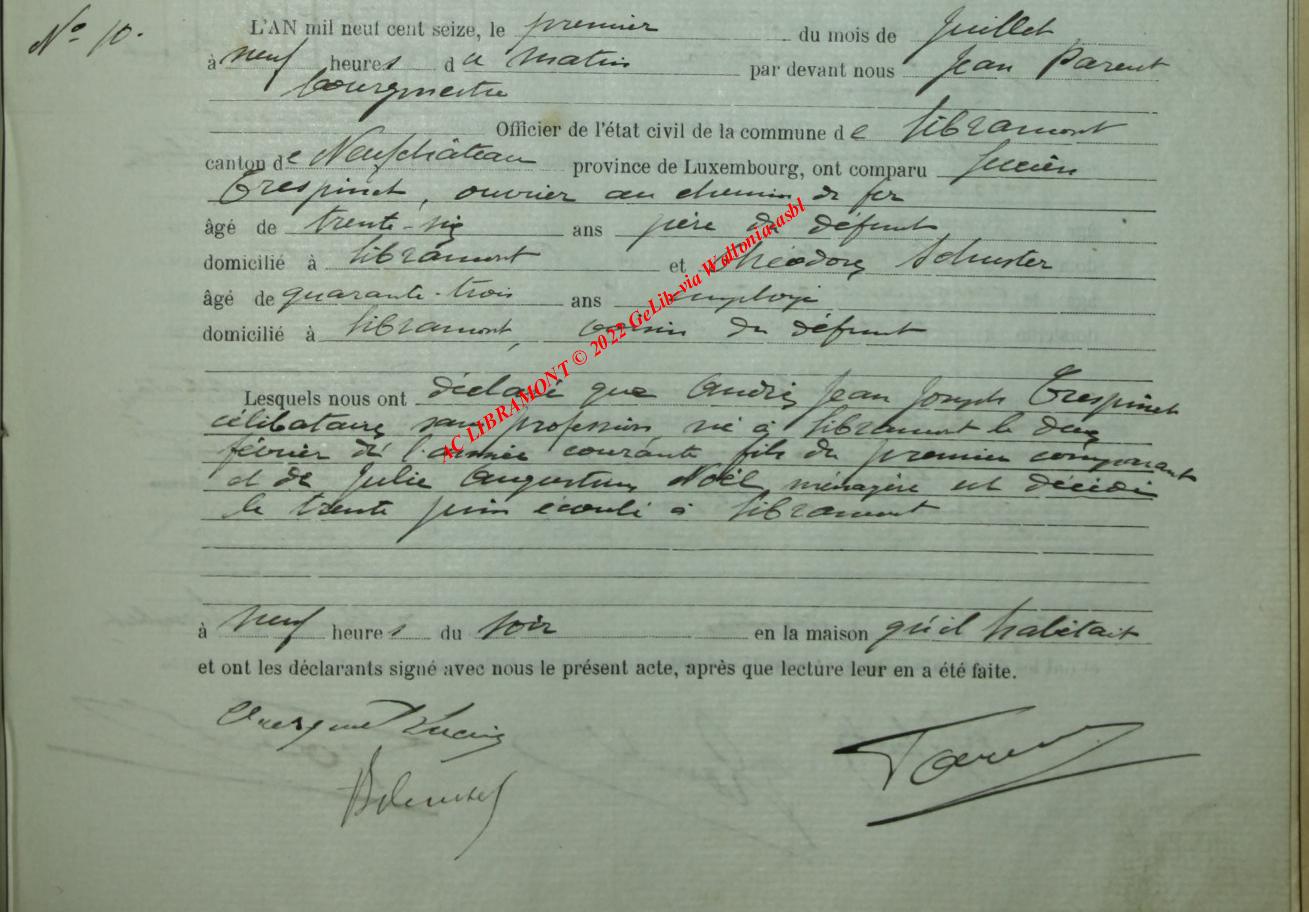 N° 10.
L'AN mil neuf cent seize, le premier du mois de Juillet
à neuf heures du matin par devant nous Jean Parent
bourgmestre
Officier de l'état civil de la commune de Libramont
canton de Neufchâteau province de Luxembourg, ont comparu Lucien
Crespinet, ouvrier au chemin de fer
âgé de trente-six ans père du défunt
domicilié à Libramont et Théodore Schuster
âgé de quarante-trois ans employé
domicilié à Libramont, voisin du défunt
Lesquels nous ont déclaré que André Jean Joseph Crespinet
célibataire, sans profession, né à Libramont le deux
février de l'année courante, fils du premier comparant
et de Julie Augustine Noël, ménagère est décédé
le trente juin écoulé à Libramont
à neuf heures du soir en la maison qu'il habitait
et ont les déclarants signé avec nous le présent acte, après que lecture leur en a été faite.
Crespinet Lucien
Parent
AC LIBRAMONT © 2022 GeLib via Wallonia-asbl